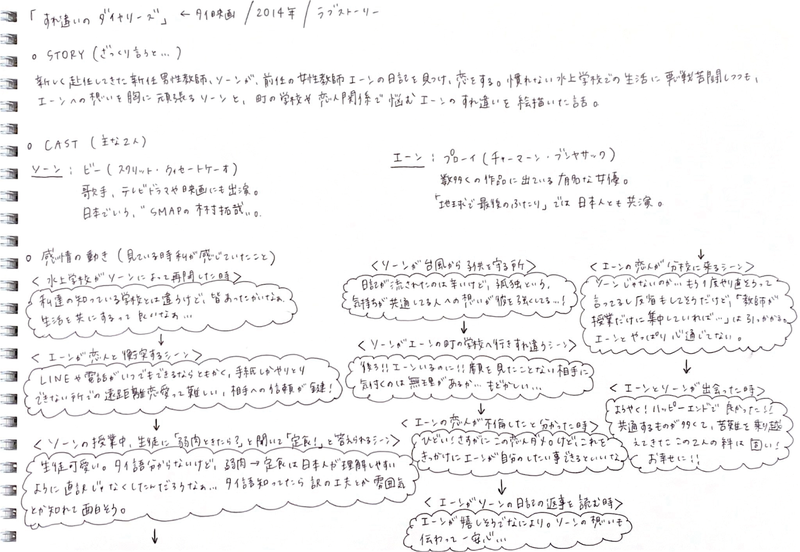 「すれ違いのダイアリーズ」 ← タイ映画 / 2014年 / ラブストーリー
○ STORY (ざっくり言うと…)
新しく赴任してきた新任男性教師、ソーンが、前任の女性教師エーンの日記を見つけ、恋をする。慣れない水上学校での生活に悪戦苦闘しつつも、
エーンへの想いを胸に頑張るソーンと、町の学校や恋人関係で悩むエーンのすれ違いを絵描いた話。
○ CAST (主な2人)
ソーン : ビー (スクリット・ウィセートケーオ)
歌手、テレビドラマや映画にも出演。
日本でいう、"SMAPの木村拓哉"。
エーン : プローイ (チャーマーン・ブンヤサック)
数多くの作品に出ている有名な女優。
「地球で最後のふたり」では日本人とも共演。
○ 感情の動き (見ている時私が感じていたこと)
<水上学校がソーンによって再開した時>
私達の知っている学校とは違うけど、皆あったかいなぁ
生活を共にするって良いなぁ…
↓
<エーンが恋人と衝突するシーン>
LINEや電話がいつでもできるならともかく、手紙しかやりとり
できない所での遠距離恋愛って難しい。相手への信頼が鍵!
↓
<ソーンの授業中、生徒に「弱肉ときたら?」と聞いて「定食!」と答えられるシーン>
生徒可愛い。タイ語分からないけど、弱肉→定食は日本人が理解しやすい
ように直訳じゃなくしたんだろうなぁ… タイ語知ってたら訳の工夫とか雰囲気
とか知れて面白そう。
↓
<ソーンが台風から子供を守る所>
日記が流されたのは辛いけど、孤独という、
気持ちが共通してる人への想いが彼を強くしてる…!
↓
<ソーンがエーンの町の学校へ行きすれ違うシーン>
後ろ!!エーンいるのに!!顔を見たことない相手に
気付くのは無理があるか… もどかしい…
↓
<エーンの恋人が不倫したと分かった時>
ひどい!さすがにこの恋人ダメ けど、これを
きっかけにエーンが自分のしたい事選るといいな
↓
<エーンがソーンの日記の返事を読む時>
エーンが嬉しそうでなにより。ソーンの想いも
伝わって一安心…
↓
<エーンの恋人が分校に来るシーン>
ソーンじゃないのか… もう1度やり直そうって
言ってるし反省もしてそうだけど、「教師が
授業だけに集中していれば…」は引っかかる。
エーンとやっぱり心通じてない。
↓
<エーンとソーンが出会った時>
ようやく!ハッピーエンドで良かった!!
共通するものが多くて、苦難を乗り越
えてきたこの2人の絆は固い!
お幸せに!!